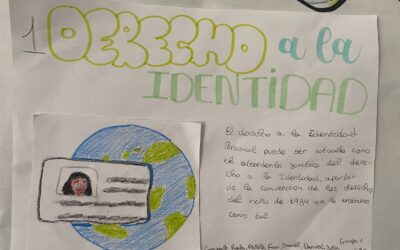 1 DERECHO a la
IDENTIDAD
El derecho a la Identidad
Personal puede ser situada como
el antecedente juridico del dere-
cho a la Identidad, apartir
de la convencion de los derechos
del niño de 1989 que la instituia
como tal
Grupo 1
Daniel,